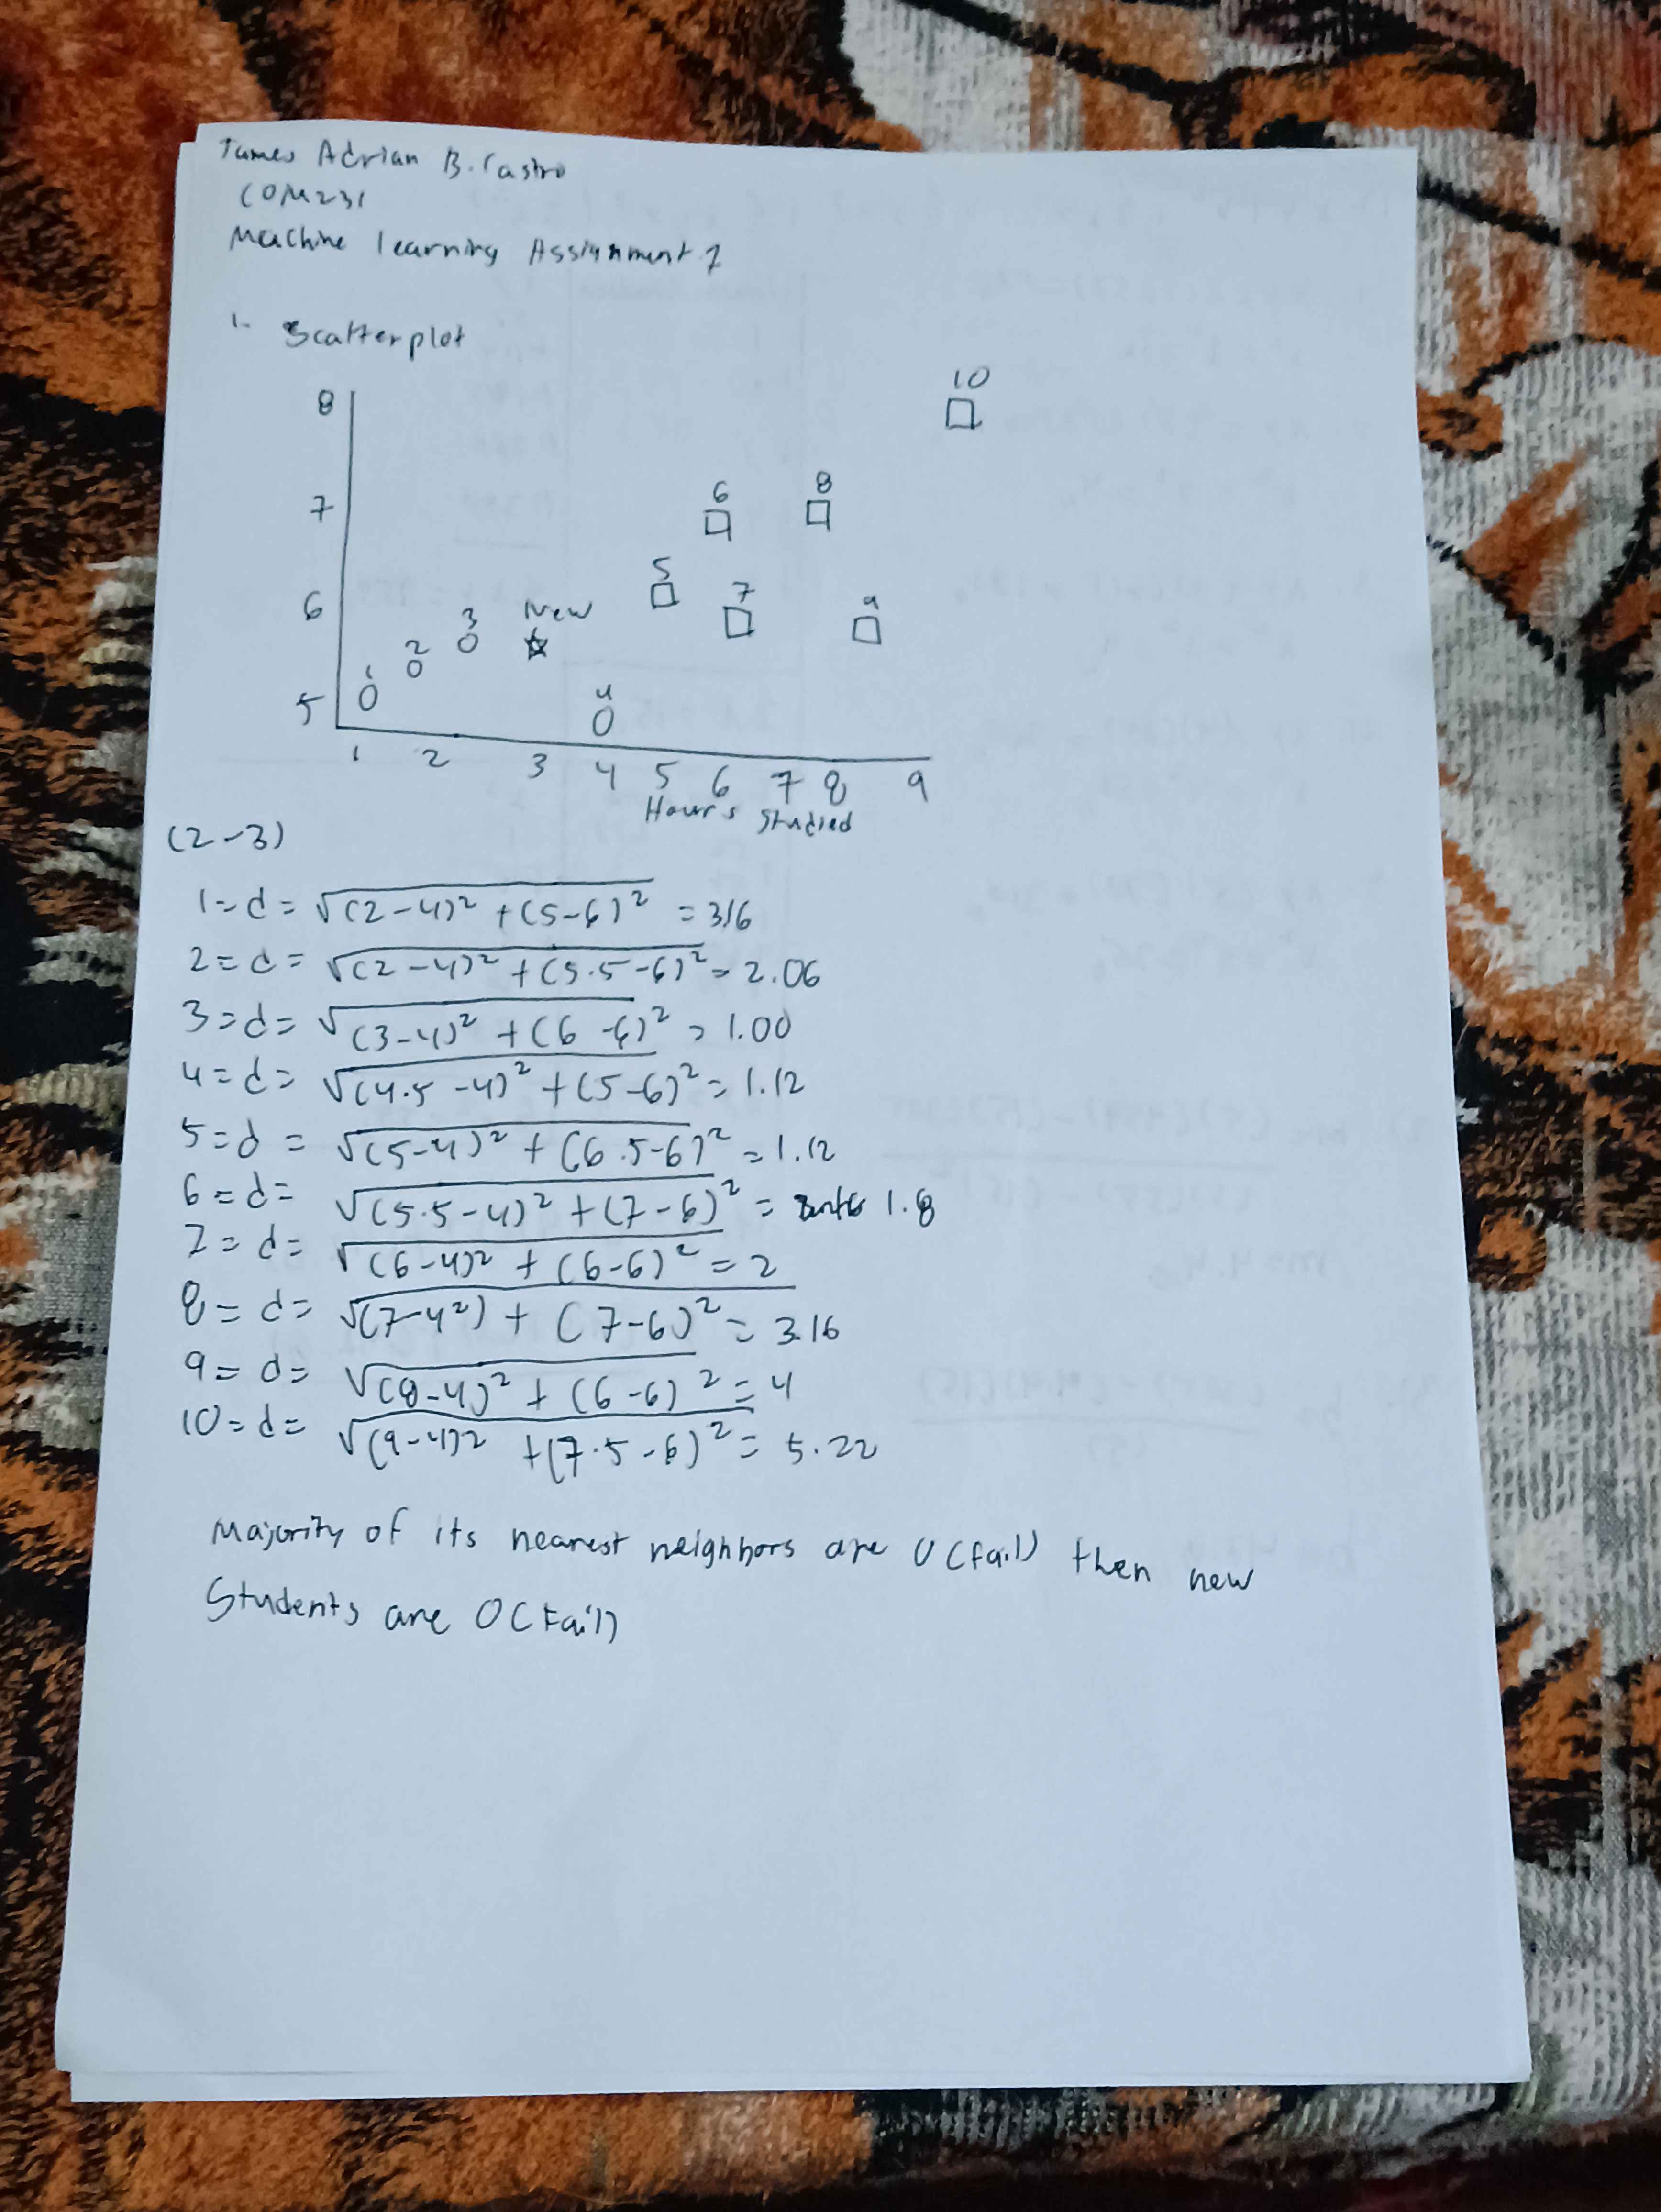 James Adrian B. Castro
COM231
Machine learning Assignment 2
1. Scatterplot
10
8
7
6 8
5
6
3 New 7 9
2
1
5
4
1 2 3 4 5 6 7 8 9
Hours Studied
(2-3)
1=d=√(2-4)² +(5-6)² =316
2=d=√(2-4)²+(5.5-6)²=2.06
3=d=√(3-4)² +(6-6)² = 1.00
4=d=√(4.5-4)²+(5-6)²=1.12
5=d=√(5-4)² +(6.5-6)²=1.12
6=d=√(5.5-4)² +(7-6)² = 1.8
7=d=√(6-4)² + (6-6)² = 2
8=d=√(7-4²) + (7-6)² = 3.16
9=d=√(8-4)² + (6-6)²=4
10=d=√(9-4)² +(7.5-6)²= 5.22
Majority of its nearest neighbors are 0(fail) then new
Students are 0(Fail)